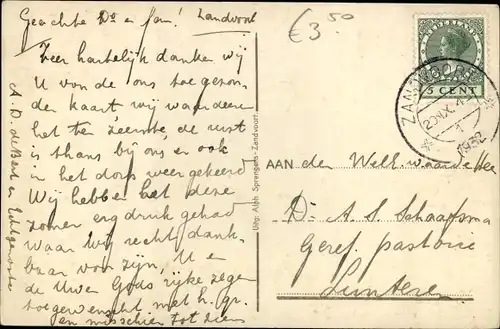 Geachte Ds en fam! Zandvoort
€3.50
Zeer hartelijk danken wij
U voor de ons toegezon-
den kaart wij waardeere
het ten zeerste, de rust
is thans bij ons en ook
in het dorp weergekeerd
Wij hebben het deze
zomer erg druk gehad
waar wij recht dank-
baar voor zijn, U en
de Uwen Gods rijke zegen
toegewenscht met h. gr.
en misschien tot ziens
A. D. en Echtgenoote
Uitg: Albh. Sprengers, Zandvoort.
NEDERLAND
5 CENT
ZANDVOORT
1932
AAN den Weled. waarde Heer
Ds A. S. Schaafsma
Geref. pastorie
Lunteren